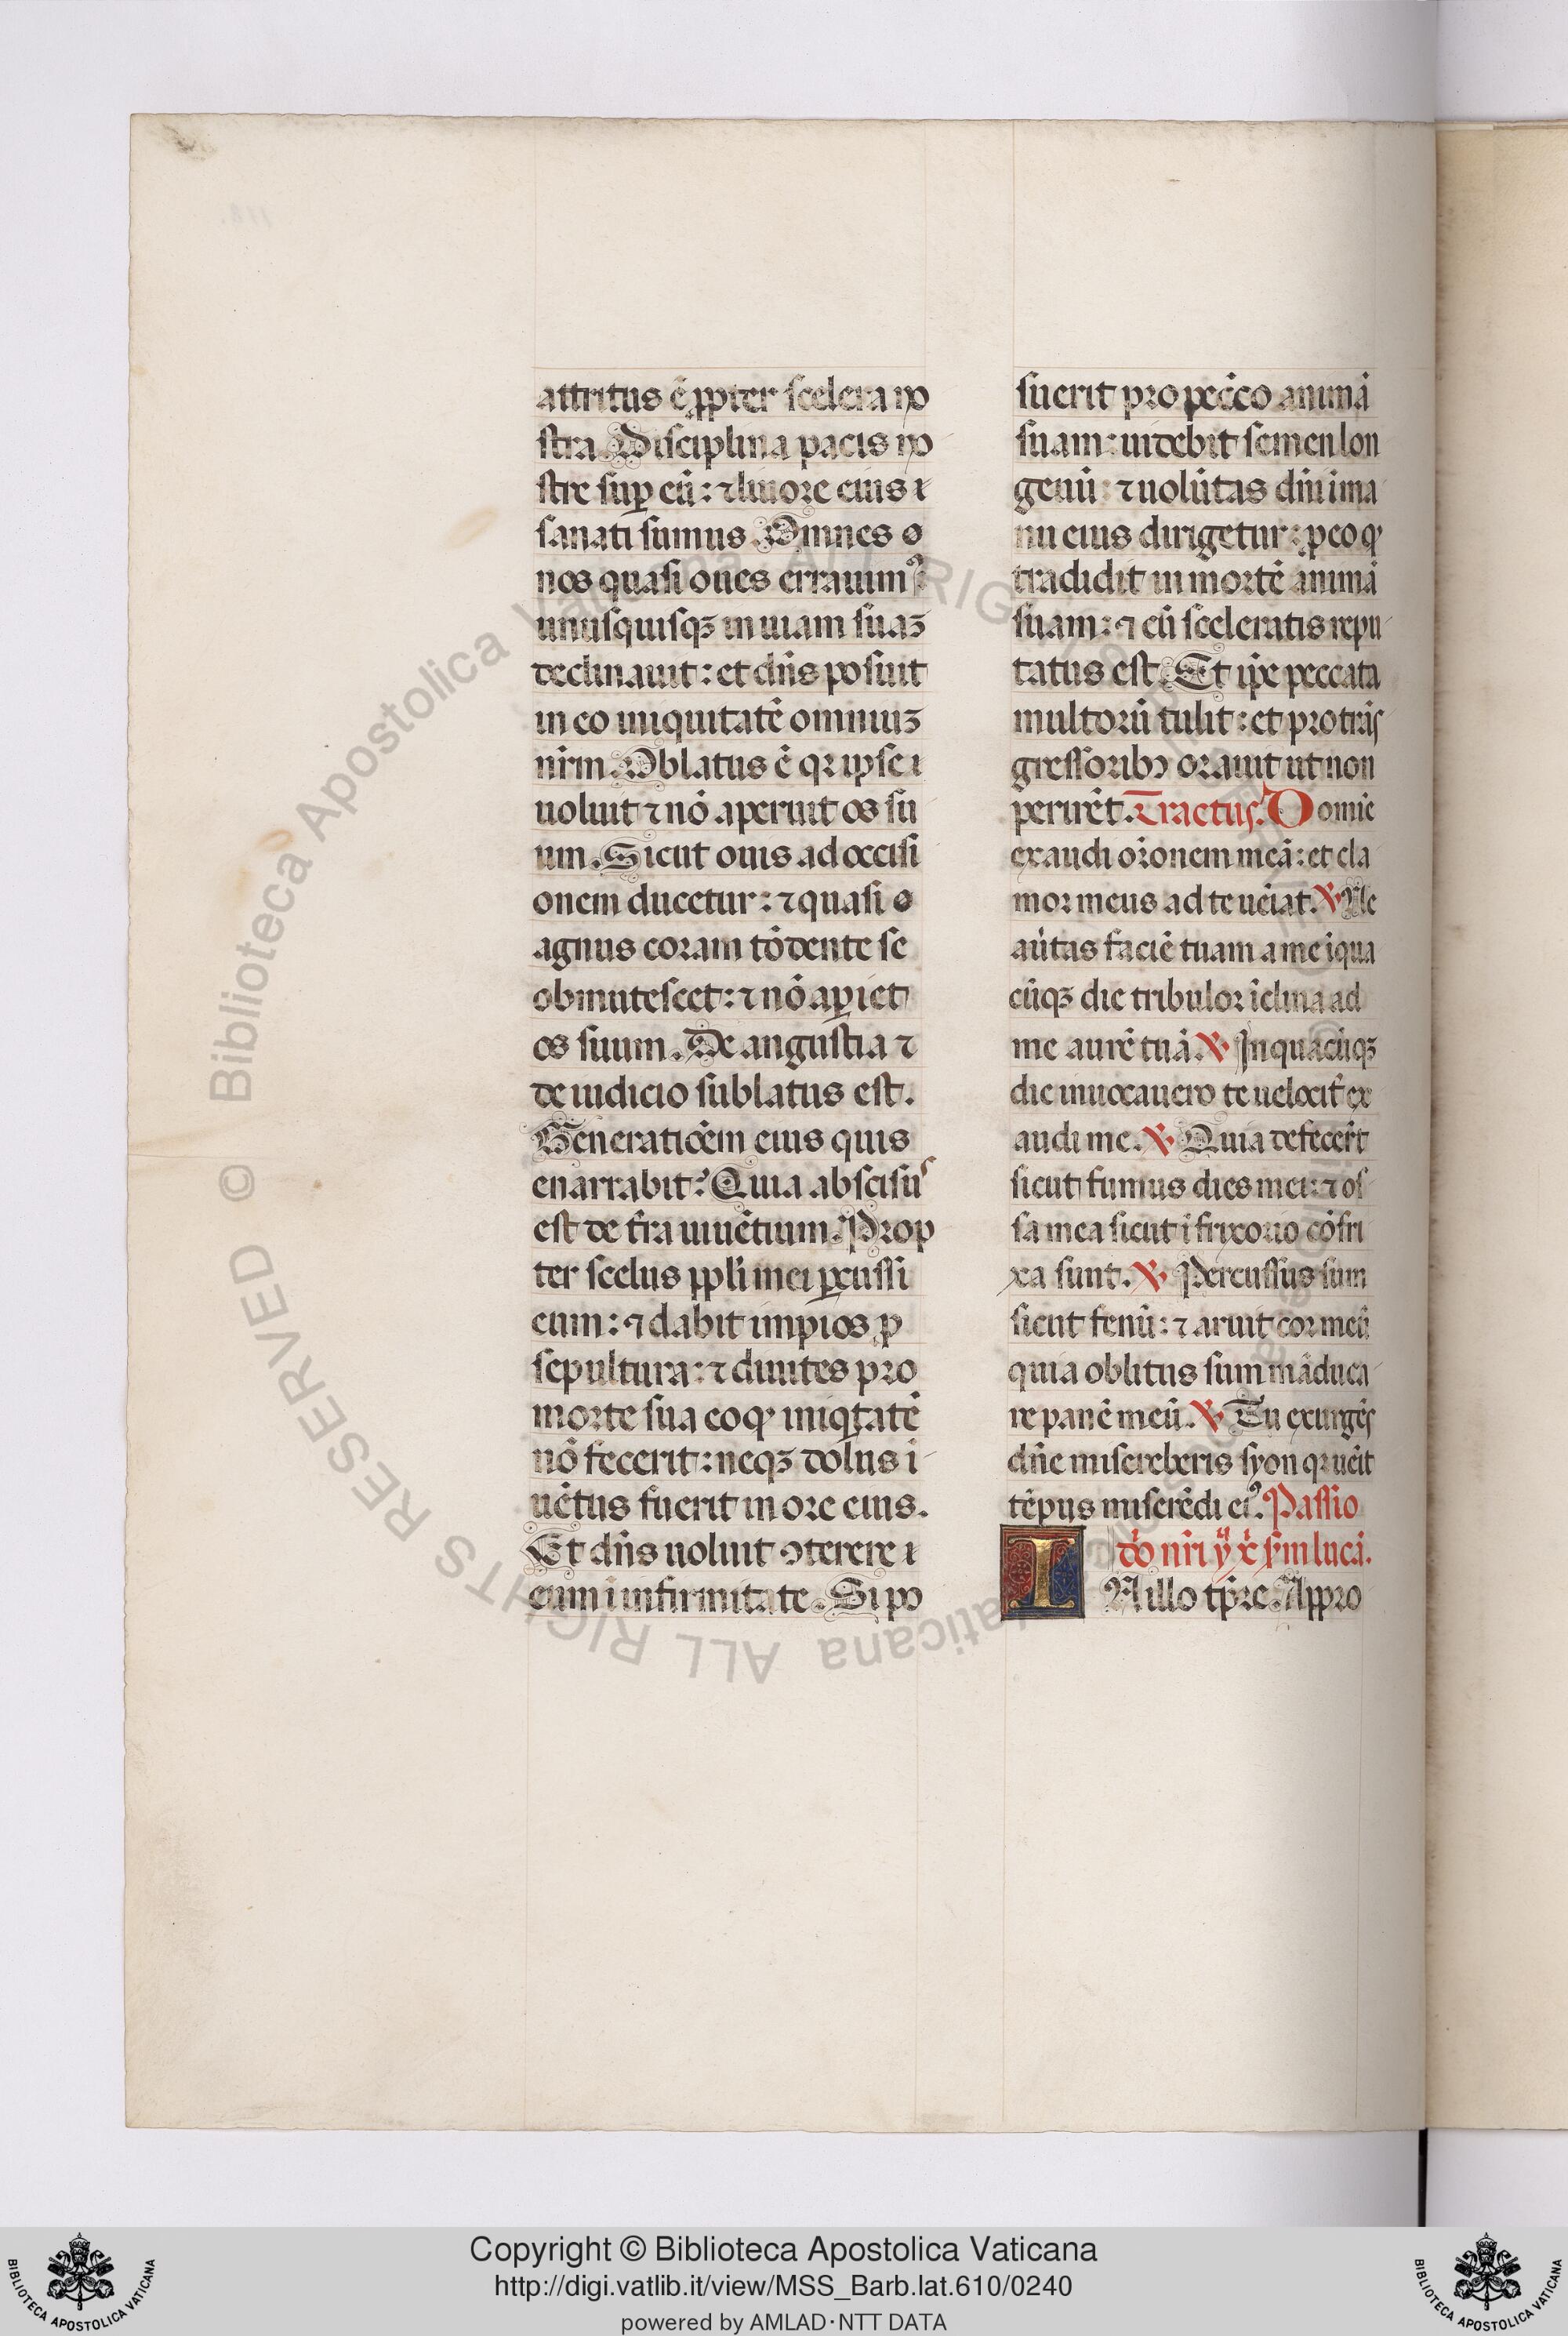 attritus ē ꝓpter scelera no
stra. Disciplina pacis no
stre suꝑ eū: ⁊ liuore eius ı
sanati sumus. Omnes o
nos quasi oues errauimꝰ:
unusquisqꝫ in uiam suaꝫ
declinauit: et dn̄s posuit
in eo iniquitatē omniuꝫ
nr̄m. Oblatus ē qꝛ ipse ı
uoluit ⁊ nō aperuit os su
um. Sicut ouis ad occisi
onem ducetur: ⁊ quasi o
agnus coram tōdente se
obmutescet: ⁊ nō aꝑiet
os suum. De angustia ⁊
de iudicio sublatus est.
Generatiōem eius quis
enarrabit? Quia abscisus
est de t̄ra uiuētium. Prop
ter scelus ppl̄i mei ꝑcussi
eum: ⁊ dabit impios ꝓ
sepultura: ⁊ diuites pro
morte sua eo qꝙ iniqͥtatē
nō fecerit: neqꝫ dolus i
uētus fuerit in ore eius.
Et dn̄s uoluit ꝯterere ı
eum i infirmitate. Si po
suerit pro pec̄co animā
suam: uidebit semen lon
geuū: ⁊ uolūtas dn̄i i ma
nu eius dirigetur: ꝓ eo qꝙ
tradidit in mortē animā
suam: ⁊ cū sceleratis repu
tatus est. Et ip̄e peccata
multorū tulit: et pro trās
gressoribꝫ orauit ut non
perirēt. Tractus. Domīe
exaudi or̄onem meā: et cla
mor meus ad te uēiat. ℣ Ne
aūtas faciē tuam a me i qua
cūqꝫ die tribulor īclina ad
me aurē tuā. ℣ In quacūqꝫ
die inuocauero te uelocit̄ ex
audi me. ℣ Quia defecer̄t
sicut fumus dies mei: ⁊ os
sa mea sicut i frixorio cōfri
xa sunt. ℣ Percussus sum
sicut fenū: ⁊ aruit cor meū
quia oblitus sum māduca
re panē meū. ℣ Tu exurgēs
dn̄e misereberis syon qꝛ uēit
tēpus miserēdi eiꝰ. Passio
dō nr̄i yͧ xͥ sm̄ lucā.
IN illo tp̄re. Appro
Copyright © Biblioteca Apostolica Vaticana
http://digi.vatlib.it/view/MSS_Barb.lat.610/0240
powered by AMLAD·NTT DATA